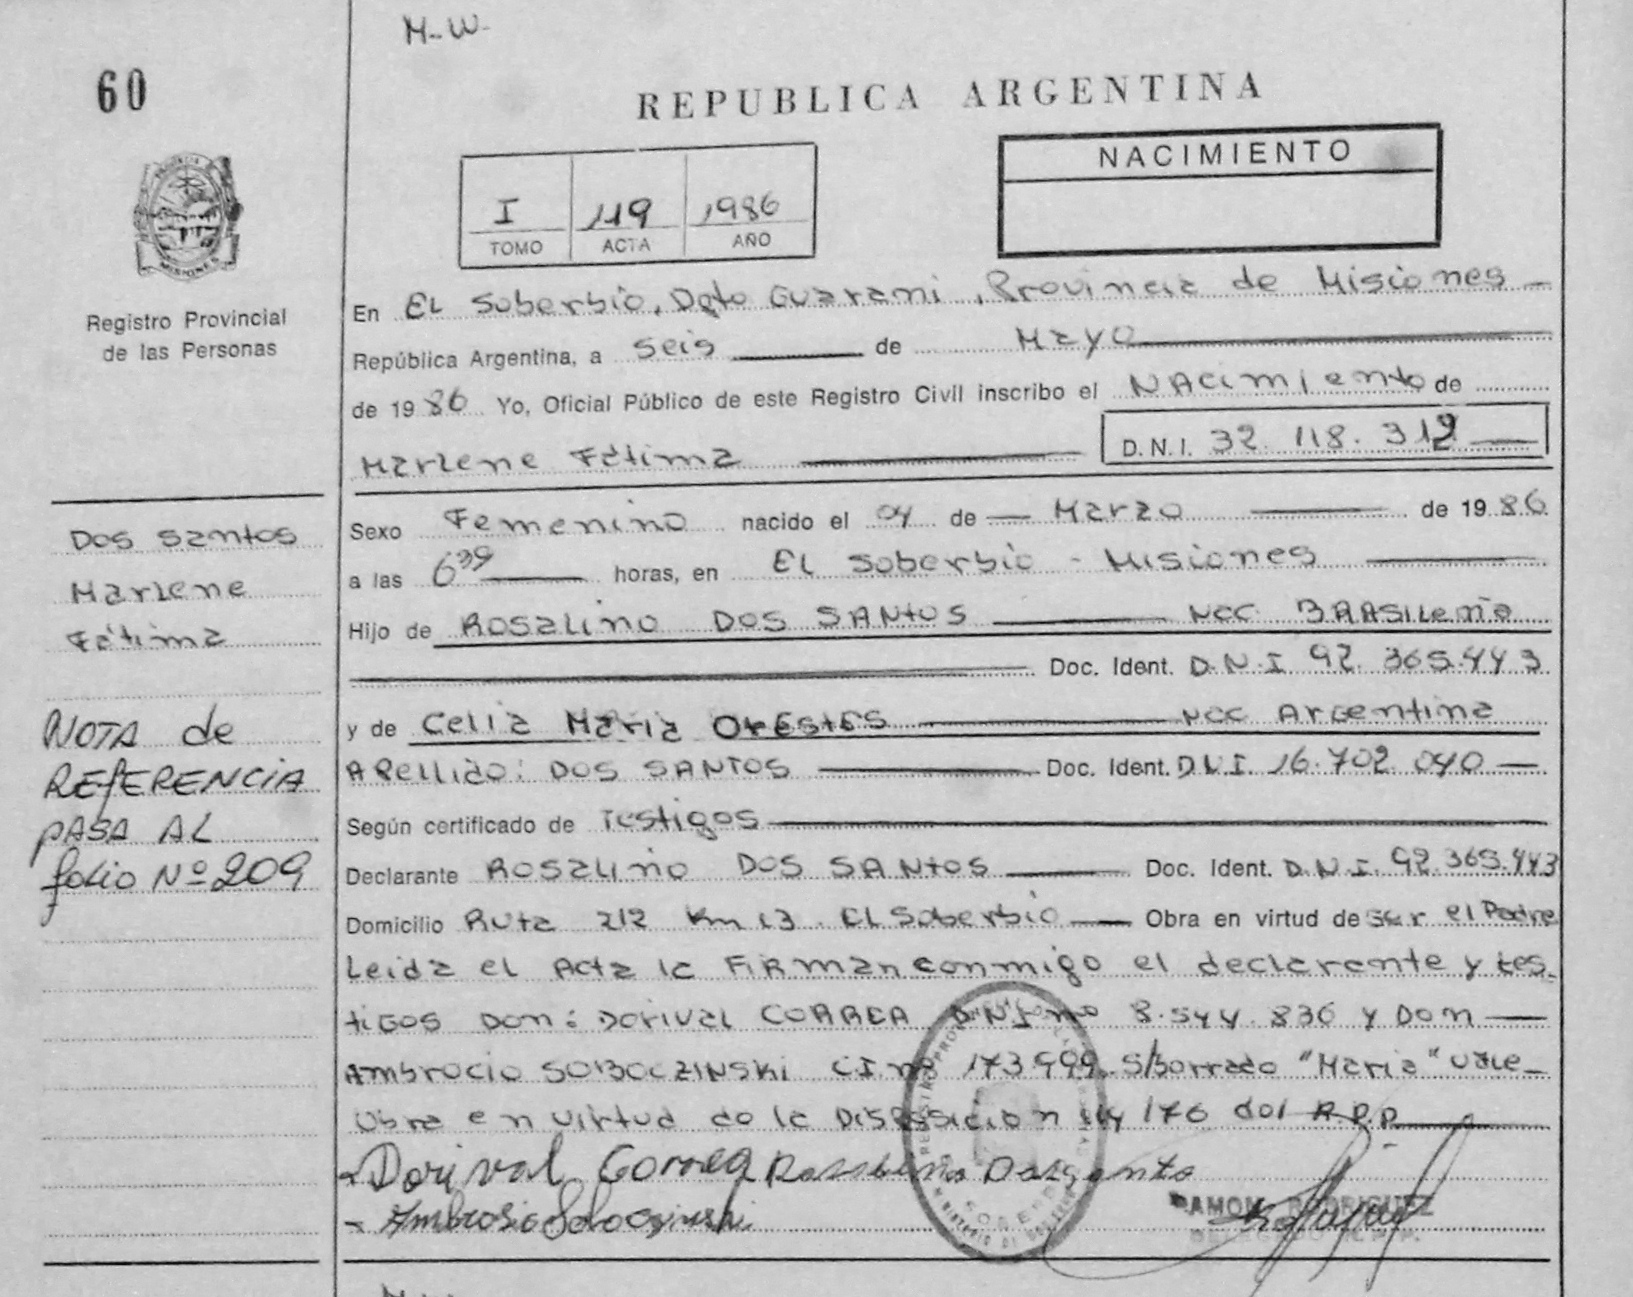 M-W-
60
REPUBLICA ARGENTINA
NACIMIENTO
I 119 1986
TOMO ACTA AÑO
MISIONES
Registro Provincial
de las Personas
En EL Soberbio, Dpto Guarani, Provincia de Misiones
República Argentina, a seis de Mayo
de 1986 Yo, Oficial Público de este Registro Civil inscribo el NAcimiento de
Marlene Fátima D.N.I. 32.118.312
Dos santos
Marlene
Fátima
Sexo Femenino nacido el 04 de Marzo de 1986
a las 6 39 horas, en EL Soberbio - Misiones
Hijo de ROSALino DOS SANtOS Ncc BRASILeño
Doc. Ident. D.N.I 92.365.443
NOTA de
REfERENCiA
pASA AL
folio Nº 209
y de Celia Maria OrEstES Ncc Argentina
APellido: DOS SANTOS Doc. Ident. D.N.I. 16.702.040
Según certificado de Testigos
Declarante ROSALino DOS SANtOS Doc. Ident. D.N.I. 92.365.443
Domicilio Ruta 212 Km 13. EL Soberbio Obra en virtud de ser el Padre
Leida el Acta la FiRman conmigo el declarante y tes-
tiGos Don: Dorival CORREA D.N.I nº 8.544.836 y Don
Ambrocio SOBOCZINSKi C.I. nº 173.999. S/borrado "Maria" vale
Obra en virtud de la Disposicion 114/76 del R.P.P
Dorival Correa
RAMON RODRIGUEZ
DELEGADO R.P.P.